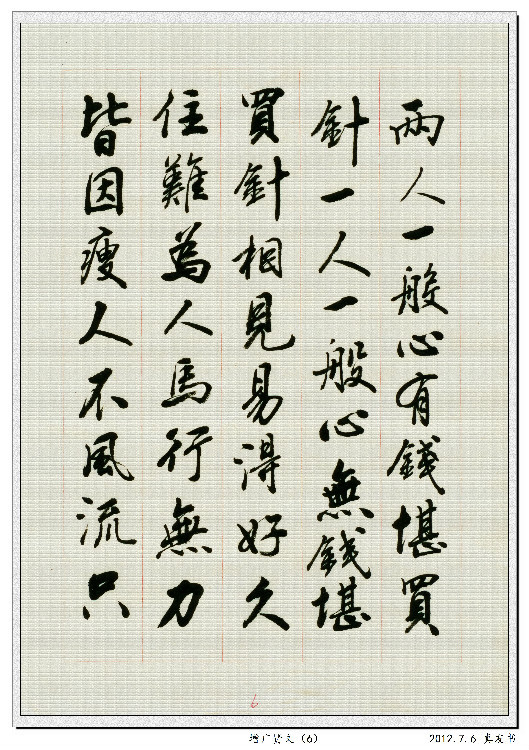 兩人一般心有錢堪買
針一人一般心無錢堪
買針相見易得好久
住難為人馬行無力
皆因瘦人不風流只
6
增广贤文 (6)
2012.7.6